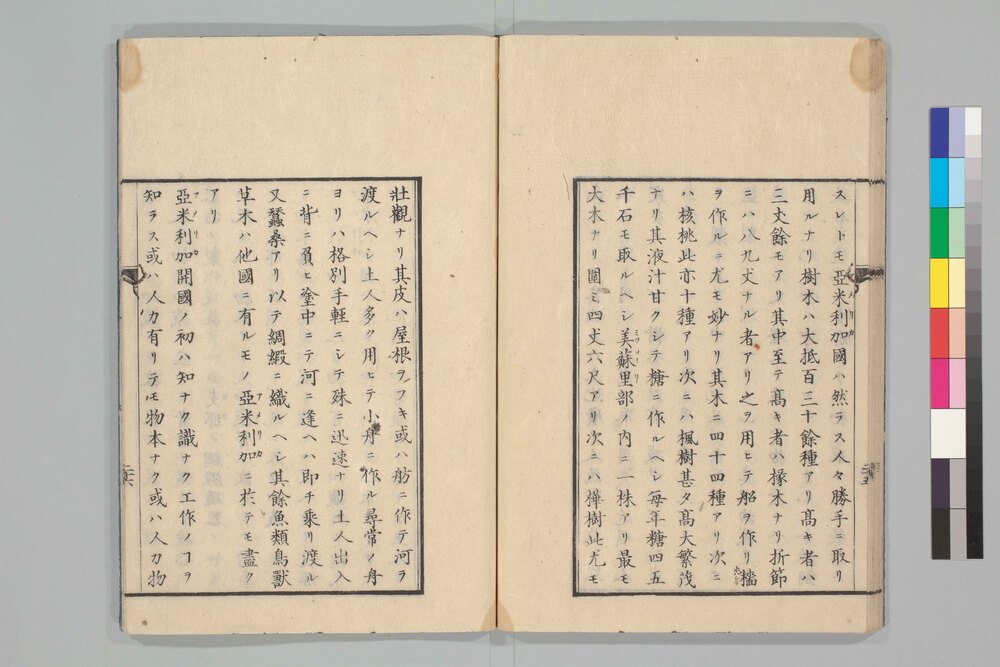 スレトモ亞米利加國ハ然ラス人々勝手ニ取リ
用ルナリ樹木ハ大抵百三十餘種アリ髙キ者ハ
三丈餘モアリ其中至テ髙キ者ハ椽木ナリ折節
ニハ八九丈ナル者アリ之ヲ用ヒテ船ヲ作リ檣
ヲ作ルニ尤モ妙ナリ其木ニ四十四種アリ次ニ
ハ核桃此亦十種アリ次ニハ楓樹甚タ髙大繁茂
ナリ其液汁甘クシテ糖ニ作ルヘシ毎年糖四五
千石モ取ルヘシ美蘇里部ノ内ニ一株アリ最モ
大木ナリ圍ミ四丈六尺アリ次ニハ樺樹此尤モ
二十五
壯觀ナリ其皮ハ屋根ヲフキ或ハ舫ニ作テ河ヲ
渡ルヘシ土人多ク用ヒテ小舟ニ作ル尋常ノ舟
ヨリハ格別手輕ニシテ殊ニ迅速ナリ土人出入
ニ背ニ負ヒ塗中ニテ河ニ逢ヘハ即チ乘リ渡ル
又蠶桑アリ以テ綢緞ニ織ルヘシ其餘魚類鳥獸
草木ハ他國ニ有ルモノ亞米利加ニ於テモ盡ク
アリ
亞米利加開國ノ初ハ知ナク識ナク工作ノコヲ
知ラス或ハ人力有リテモ物本ナク或ハ人力物
二十六